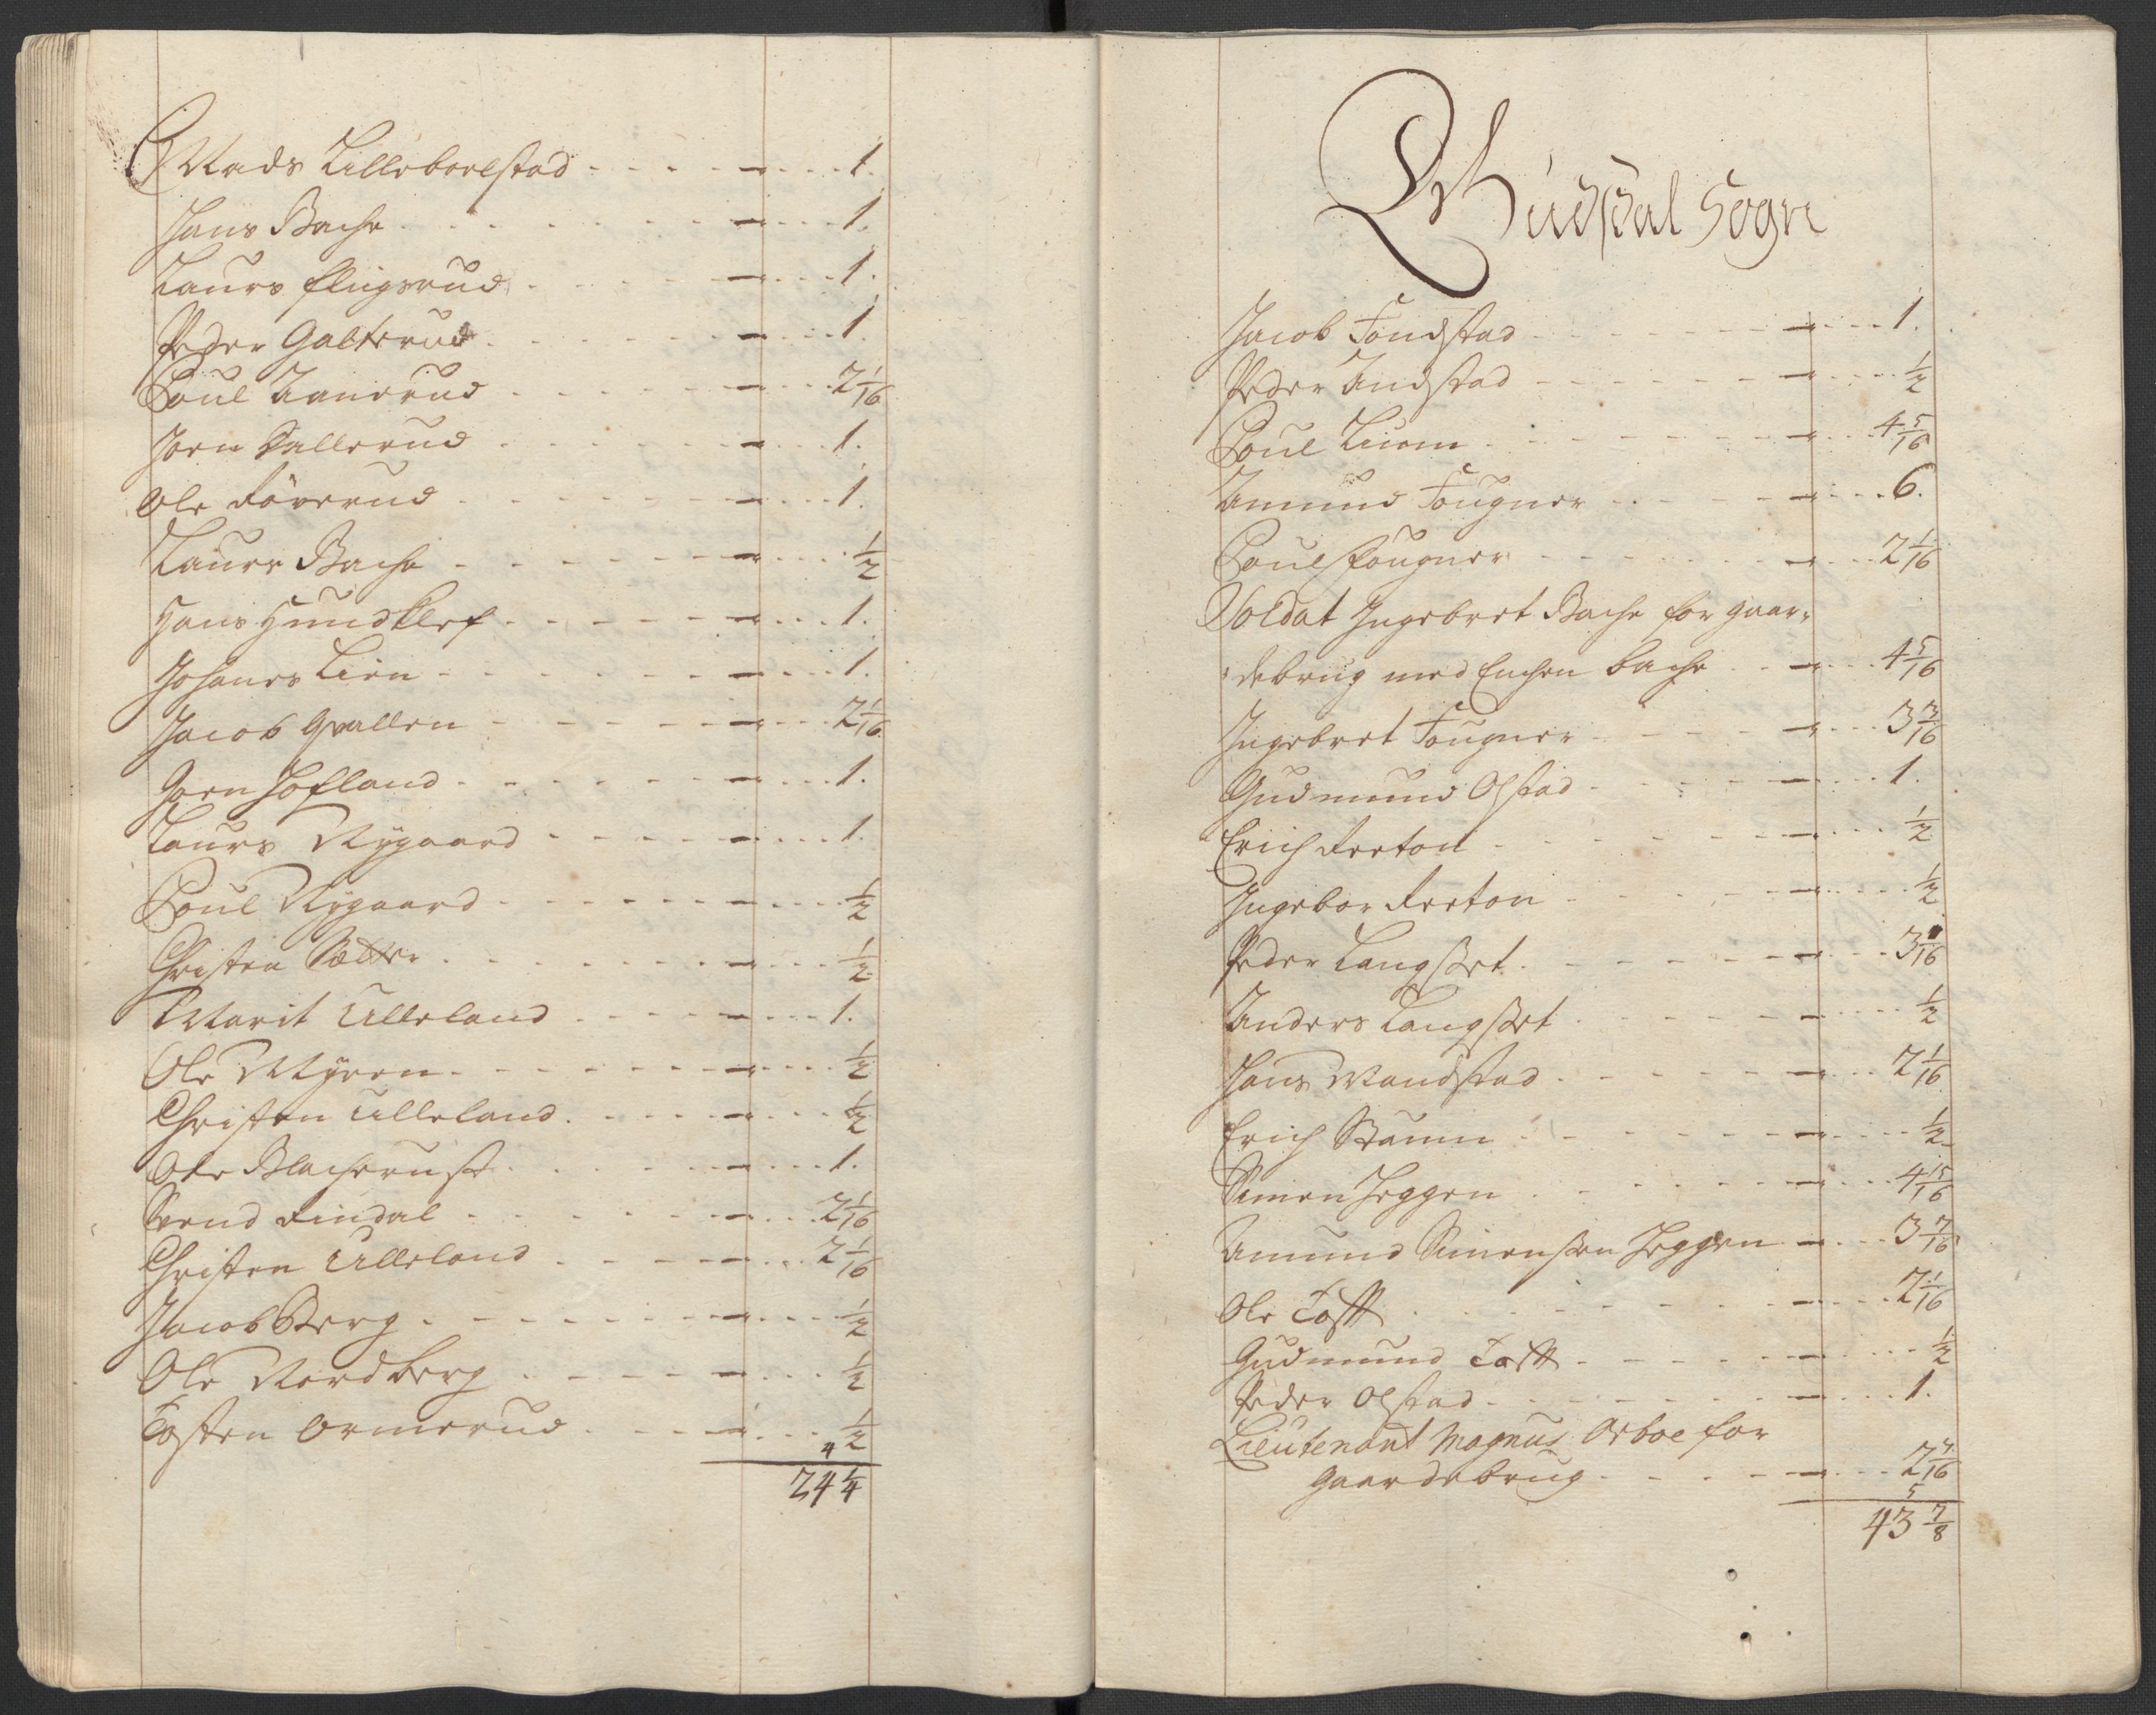 Mads Lilleborlstad - - - - 1.
Hans Bache - - - - 1.
Laurs flugsrud - - - - 1.
Peder Galterud - - - - 1.
Poul Lanerud - - - - 2 1/16
Joen Kallerud - - - - 1.
Ole Röverud - - - - 1.
Laurs Bache - - - - 1/2
Hans Hundklef - - - - 1.
Johanes Lien - - - - 1.
Jacob Qvallen - - - - 2 1/16
Joen Hofland - - - - 1.
Laurs Nygaard - - - - 1.
Poul Nygaard - - - - 1/2
Christen Sætter - - - - 1/2
Marit Ulleland - - - - 1.
Ole Myren - - - - 1/2
Christen Ulleland - - - - 1/2
Ole Blacherust - - - - 1.
Svend Rindal - - - - 2 1/16
Christen Ulleland - - - - 2 1/16
Jacob Berg - - - - 1/2
Ole Nordberg - - - - 1/2
Tosten Ormerud - - - - 1/2
4
24 1/4
Sogn
Jacob Fondstad - - - - 1.
Peder - - - - 1/2
Poul Liom - - - - 4 5/16
Amund Fougner - - - - 6.
Poul Fougner - - - - 2 1/16
Soldat Ingebret Bache for gaar-
debrug med Enchen bache - - 4 5/16
Ingebret Fougner - - - - 3 3/16
Gudmund Olstad - - - - 1.
Erich Reeton - - - - 1/2
Ingebor Reeton - - - - 1/2
Peder Langsset - - - - 3 1/16
Anders Langsset - - - - 1/2
Hans Wandstad - - - - 2 1/16
Erich - - - - 1/2
Simen Heggen - - - - 4 15/16
Amund Simenssen Heggen - - 3 7/16
Ole Toft - - - - 2 1/16
Gudmund Toft - - - - 1/2
Peder Olstad - - - - 1.
Lieutenant Magnus Orboe for
Gaardebrug - - - - 2 7/16
5
43 7/8